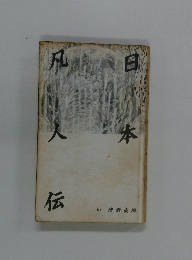 日本
凡人伝